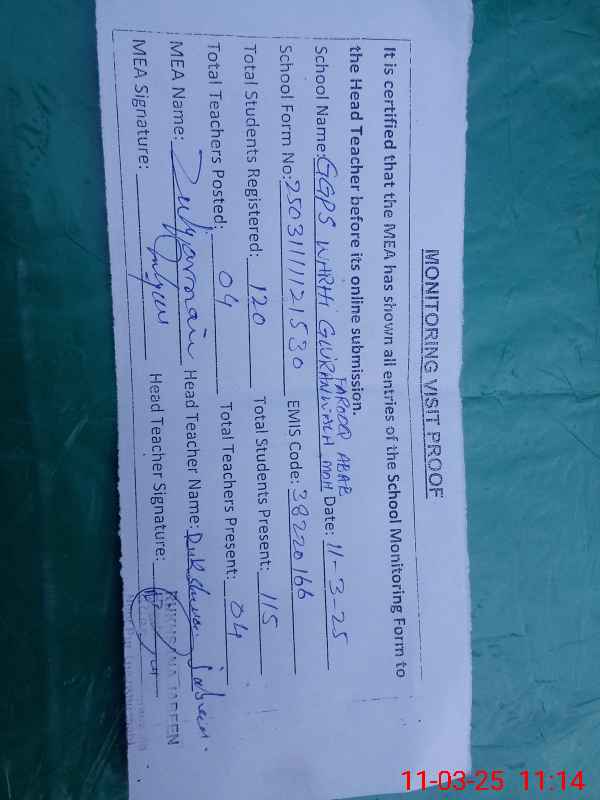 MONITORING VISIT PROOF
It is certified that the MEA has shown all entries of the School Monitoring Form to
the Head Teacher before its online submission.
FAROOQ ABAD
School Name: GGPS WARHI GUJRANWALA MOH Date: 11-3-25
School Form No: 25031111121530 EMIS Code: 38220166
Total Students Registered: 120 Total Students Present: 115
Total Teachers Posted: 04 Total Teachers Present: 04
MEA Name: Zulqarnain Head Teacher Name: Rukhsana Jabeen
MEA Signature: Head Teacher Signature:
RUKHSANA JABEEN
11-03-25 11:14